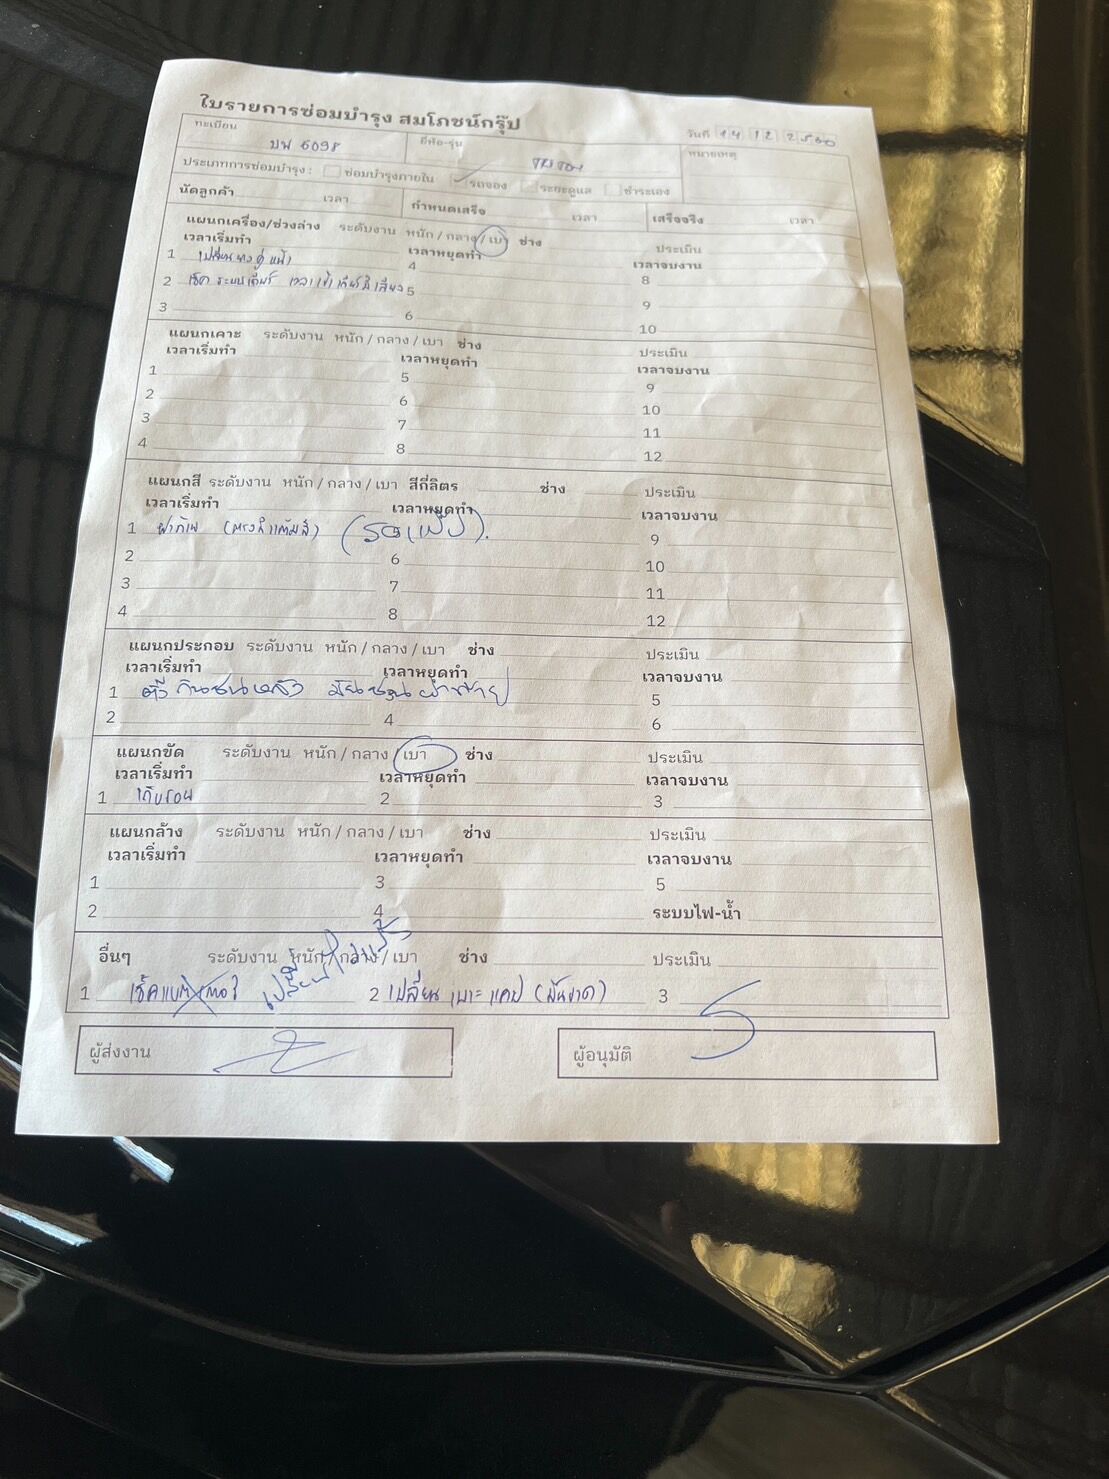 ใบรายการซ่อมบำรุง สมโภชน์กรุ๊ป
วันที่ 14 12 2560
ทะเบียน บฬ 6098 ยี่ห้อ-รุ่น หมายเหตุ
ประเภทการซ่อมบำรุง : ซ่อมบำรุงภายใน รถจอง ระยะดูแล ชำระเอง
นัดลูกค้า เวลา กำหนดเสร็จ เวลา เสร็จจริง เวลา
แผนกเครื่อง/ช่วงล่าง ระดับงาน หนัก / กลาง / เบา ช่าง ประเมิน
เวลาเริ่มทำ เวลาหยุดทำ เวลาจบงาน
1 เปลี่ยนยางคู่หน้า 4 8
2 เช็คระบบเกียร์ เวลาเข้าเกียร์มีเสียง 5 9
3 6 10
แผนกเคาะ ระดับงาน หนัก / กลาง / เบา ช่าง ประเมิน
เวลาเริ่มทำ เวลาหยุดทำ เวลาจบงาน
1 5 9
2 6 10
3 7 11
4 8 12
แผนกสี ระดับงาน หนัก / กลาง / เบา สีกี่ลิตร ช่าง ประเมิน
เวลาเริ่มทำ เวลาหยุดทำ เวลาจบงาน
1 9
2 6 10
3 7 11
4 8 12
แผนกประกอบ ระดับงาน หนัก / กลาง / เบา ช่าง ประเมิน
เวลาเริ่มทำ เวลาหยุดทำ เวลาจบงาน
1 กันชนหลัง 5
2 4 6
แผนกขัด ระดับงาน หนัก / กลาง / เบา ช่าง ประเมิน
เวลาเริ่มทำ เวลาหยุดทำ เวลาจบงาน
1 เก็บรอย 2 3
แผนกล้าง ระดับงาน หนัก / กลาง / เบา ช่าง ประเมิน
เวลาเริ่มทำ เวลาหยุดทำ เวลาจบงาน
1 3 5
2 4 ระบบไฟ-น้ำ
อื่นๆ ระดับงาน หนัก / กลาง / เบา ช่าง ประเมิน
1 เช็คแบตเตอรี่ 2 เปลี่ยน เบาะ แคป (มันขาด) 3
ผู้ส่งงาน ผู้อนุมัติ